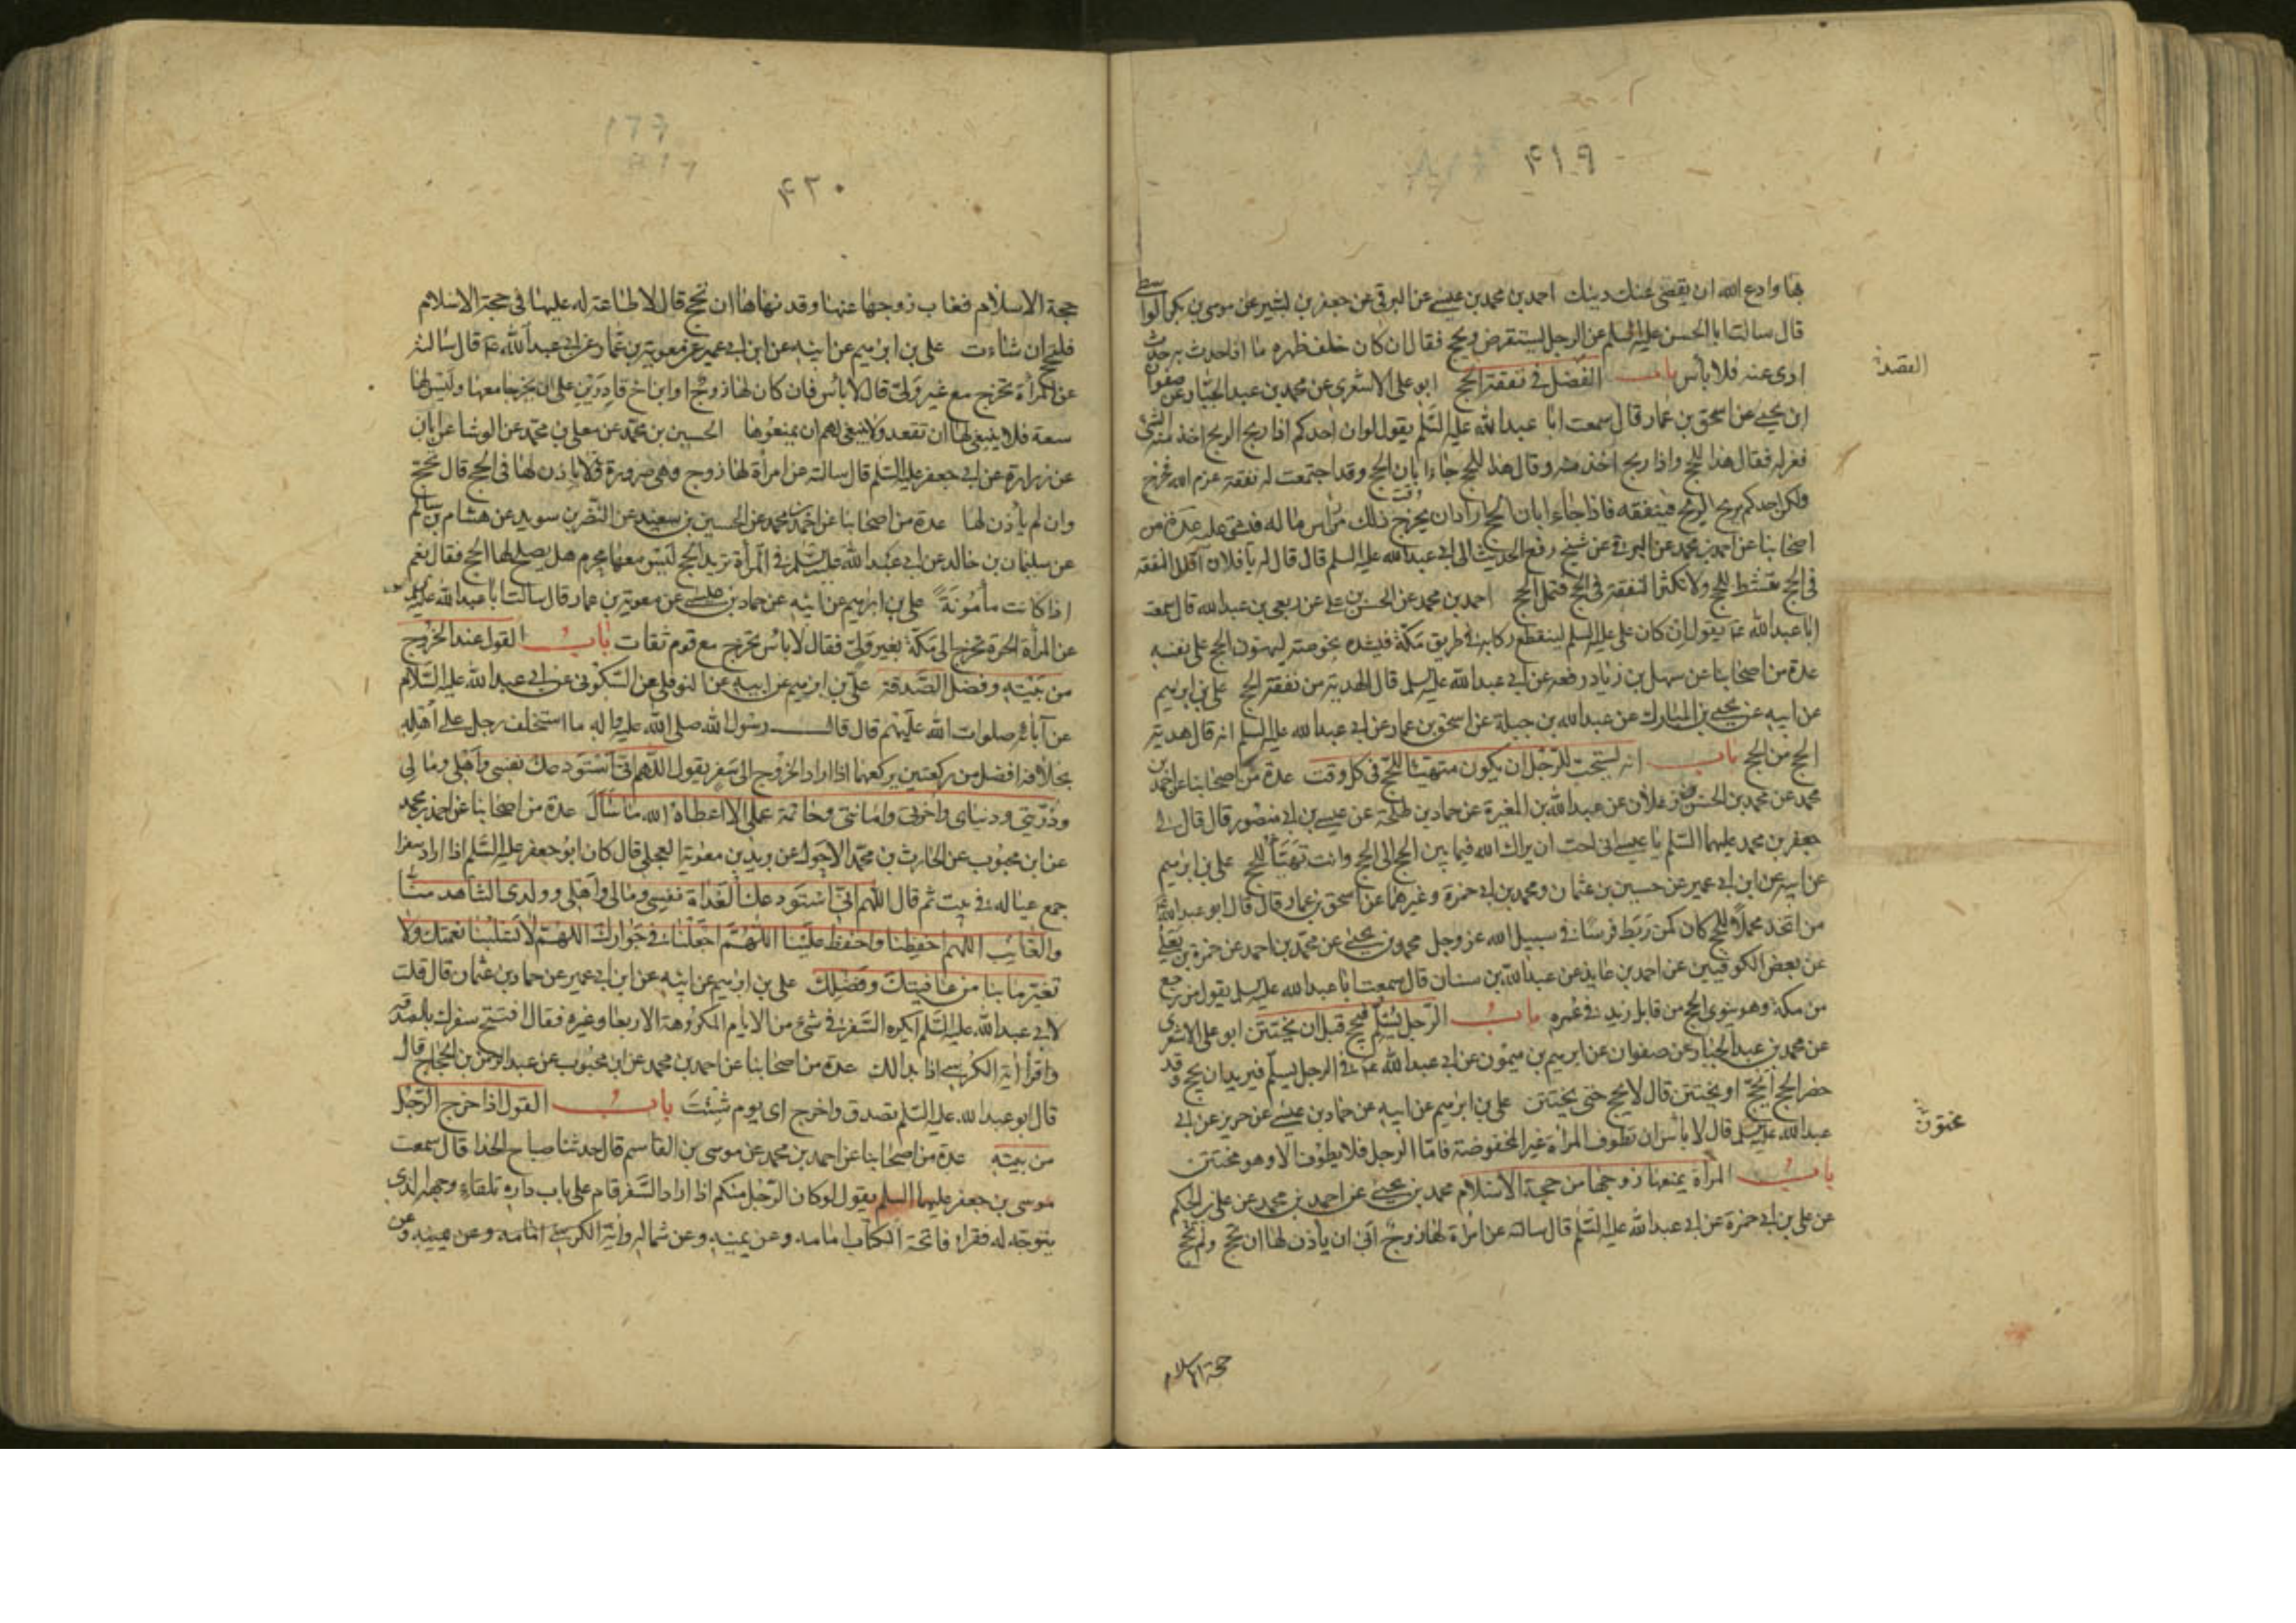 ۴۱۹
بها وادع الله ان يقضى عنك دينك احمد بن محمد بن عيسى عن البرقى عن جعفر بن بشير عن موسى بن بكر الواسطى
قال سالت ابا الحسن عليه السلم عن الرجل يستقرض ويحج فقال ان كان خلف ظهره ما اذا حدث به حدث
ادى عنه فلا بأس باب الفضل فى نفقة الحج ابو على الاشعرى عن محمد بن عبد الجبار عن صفوان
ابن يحيى عن اسحق بن عمار قال سمعت ابا عبد الله عليه السلم يقول لو ان احدكم اذا ربح الربح اخذ منه الشئ
فعزله فقال هذا للحج واذا ربح اخذ منه وقال هذا للحج جاء ابان الحج وقد اجتمعت له نفقة عزم الله فخرج
ولكن احدكم يربح الربح فينفقه فاذا جاء ابان الحج اراد ان يخرج ذلك من راس ماله فيشق عليه عدة من
اصحابنا عن احمد بن محمد عن البرقى عن شيخ رفع الحديث الى ابى عبد الله عليه السلم قال قال له يا فلان اقلل النفقة
فى الحج تنشط للحج ولا تكثر النفقة فى الحج فتمل الحج احمد بن محمد عن الحسن بن على عن ربعى بن عبد الله قال سمعت
ابا عبد الله عم يقول ان كان على عليه السلم لينقطع ركابه فى طريق مكة فيشده بخوصة ليهون الحج على نفسه
عدة من اصحابنا عن سهل بن زياد رفعه عن ابى عبد الله عليه السلم قال الهدية من نفقة الحج على بن ابرهيم
عن ابيه عن يحيى بن المبارك عن عبد الله بن جبلة عن اسحق بن عمار عن ابى عبد الله عليه السلم انه قال هدية
الحج من الحج باب انه يستحب للرجل ان يكون متهيئا للحج فى كل وقت عدة من اصحابنا عن احمد بن
محمد عن محمد بن الحسن زعلان عن عبد الله بن المغيرة عن حماد بن طلحة عن عيسى بن ابى منصور قال قال لى
جعفر بن محمد عليهما السلم يا عيسى انى احب ان يراك الله فيما بين الحج الى الحج وانت تهيأ للحج على بن ابرهيم
عن ابيه عن ابن ابى عمير عن حسين بن عثمان ومحمد بن ابى حمزة وغيرهما عن اسحق بن عمار قال قال ابو عبد الله
من اتخذ محملا للحج كان كمن ربط فرسا فى سبيل الله عز وجل محمد بن يحيى عن محمد بن احمد عن حمزة بن يعلى
عن بعض الكوفيين عن احمد بن عايذ عن عبد الله بن سنان قال سمعت ابا عبد الله عليه السلم يقول من رجع
من مكة وهو ينوى الحج من قابل زيد فى عمره باب الرجل يسلم فيحج قبل ان يختتن ابو على الاشعرى
عن محمد بن عبد الجبار عن صفوان عن ابرهيم بن ميمون عن ابى عبد الله عم فى الرجل يسلم فيريد ان يحج وقد
حضر الحج ايحج او يختتن قال لا يحج حتى يختتن على بن ابرهيم عن ابيه عن حماد بن عيسى عن حريز عن ابى
عبد الله عليه السلم قال لا باس ان تطوف المرأة غير المخفوضة فاما الرجل فلا يطوف الا وهو مختتن
باب المرأة يمنعها زوجها من حجة الاسلام محمد بن يحيى عن احمد بن محمد عن على بن الحكم
عن على بن ابى حمزة عن ابى عبد الله عليه السلم قال سالته عن امرأة لها زوج ابى ان يأذن لها ان تحج ولم تحج
حجة الاسلام
القصد
مختون
۴۲۰
حجة الاسلام فغاب زوجها عنها وقد نهاها ان تحج قال لا طاعة له عليها فى حجة الاسلام
فلتحج ان شاءت على بن ابرهيم عن ابيه عن ابن ابى عمير عن معوية بن عمار عن ابى عبد الله عم قال سالته
عن المرأة تخرج مع غير ولى قال لا بأس فان كان لها زوج او ابن اخ قادرين على ان يخرجا معها وليس لها
سعة فلا ينبغى لها ان تقعد ولا ينبغى لهم ان يمنعوها الحسين بن محمد عن معلى بن محمد عن الوشا عن ابان
عن زرارة عن ابى جعفر عليه السلم قال سالته عن امرأة لها زوج وهى صرورة ولا يأذن لها فى الحج قال تحج
وان لم يأذن لها عدة من اصحابنا عن احمد بن محمد عن الحسين بن سعيد عن النضر بن سويد عن هشام بن سالم
عن سليمان بن خالد عن ابى عبد الله عليه السلم فى المرأة تريد الحج ليس معها محرم هل يصلح لها الحج فقال نعم
اذا كانت مأمونة على بن ابرهيم عن ابيه عن حماد بن عيسى عن معوية بن عمار قال سالت ابا عبد الله عليه السلم
عن المرأة الحرة تخرج الى مكة بغير ولى فقال لا باس تخرج مع قوم ثقات باب القول عند الخروج
من بيته وفضل الصدقة على بن ابرهيم عن ابيه عن النوفلى عن السكونى عن ابى عبد الله عليه السلام
عن آبائه صلوات الله عليهم قال قال رسول الله صلى الله عليه واله ما استخلف رجل على اهله
بخلافة افضل من ركعتين يركعهما اذا اراد الخروج الى سفر يقول اللهم انى استودعك نفسى واهلى ومالى
وذريتى ودنياى واخرتى وامانتى وخاتمة عملى الا اعطاه الله ما سأل عدة من اصحابنا عن احمد بن محمد
عن ابن محبوب عن الحارث بن محمد الاحول عن بريد بن معوية العجلى قال كان ابو جعفر عليه السلم اذا اراد سفرا
جمع عياله فى بيت ثم قال اللهم انى استودعك الغداة نفسى ومالى واهلى وولدى الشاهد منا
والغايب اللهم احفظنا واحفظ علينا اللهم اجعلنا فى جوارك اللهم لا تسلبنا نعمتك ولا
تغير ما بنا من عافيتك وفضلك على بن ابرهيم عن ابيه عن ابن ابى عمير عن حماد بن عثمان قال قلت
لابى عبد الله عليه السلم ايكره السفر فى شئ من الايام المكروهة الاربعا وغيره فقال افتتح سفرك بالصدقة
واقرأ اية الكرسى اذا بدا لك عدة من اصحابنا عن احمد بن محمد عن ابن محبوب عن عبد الرحمن بن الحجاج قال
قال ابو عبد الله عليه السلم تصدق واخرج اى يوم شئت باب القول اذا خرج الرجل
من بيته عدة من اصحابنا عن احمد بن محمد عن موسى بن القاسم قال حدثنا صباح الحذا قال سمعت
موسى بن جعفر عليهما السلم يقول لو كان الرجل منكم اذا اراد السفر قام على باب داره تلقاء وجهه الذى
يتوجه له فقرا فاتحة الكتاب امامه وعن يمينه وعن شماله واية الكرسى امامه وعن يمينه وعن